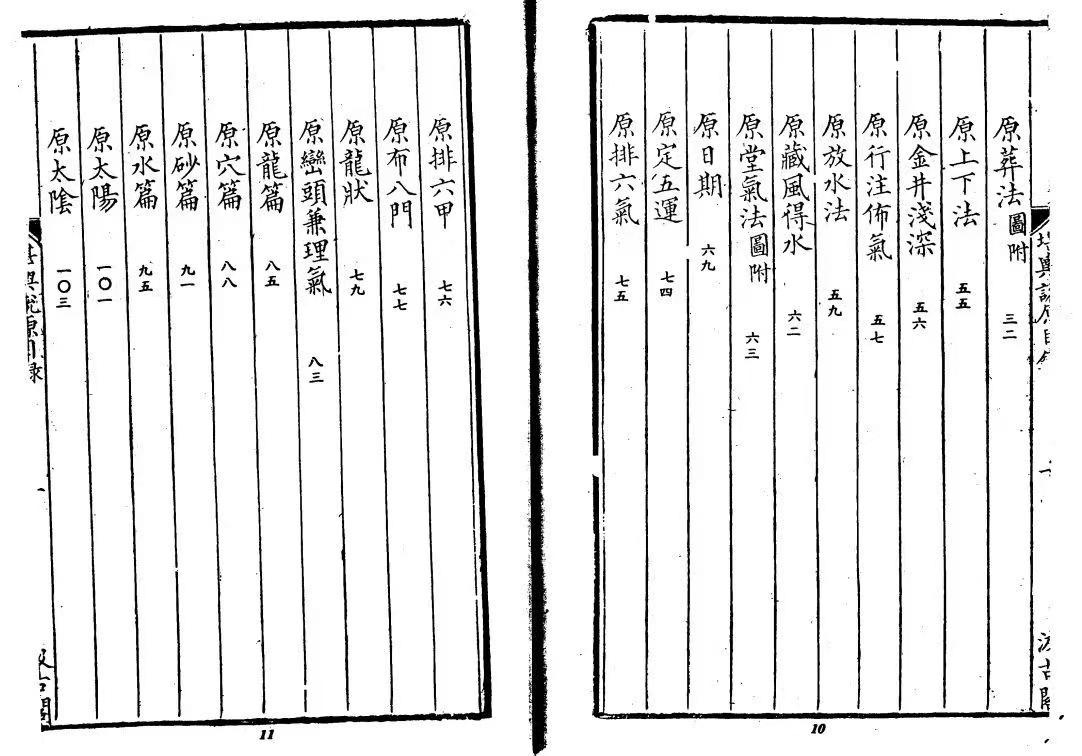 原葬法圖附 三二
原上下法 五五
原金井淺深 五六
原行注佈氣 五七
原放水法 五九
原藏風得水 六二
原堂氣法圖附 六三
原日期 六九
原定五運 七四
原排六氣 七五
10
原排六甲 七六
原布八門 七七
原龍狀 七九
原巒頭兼理氣 八三
原龍篇 八五
原穴篇 八八
原砂篇 九一
原水篇 九五
原太陽 一〇一
原太陰 一〇三
11